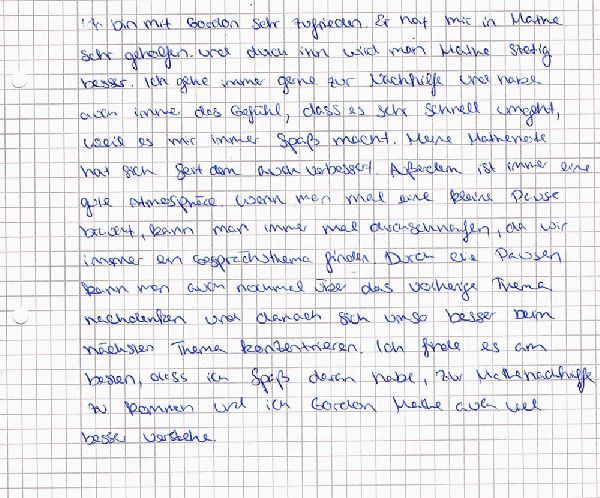 Ich bin mit Gordon sehr zufrieden. Er hat mir in Mathe
sehr geholfen. und durch ihn wird man Mathe stetig
besser. Ich gehe immer gerne zur Nachhilfe und habe
auch immer das Gefühl, dass es sehr schnell umgeht,
weil es mir immer Spaß macht. Meine Mathenote
hat sich seit dem auch verbessert. Außerdem ist immer eine
gute Atmosphäre wenn man mal eine kleine Pause
braucht, kann man immer mal durchschnaufen, da wir
immer ein Gesprächsthema finden Durch die Pausen
kann man auch nochmal über das vorherige Thema
nachdenken und danach sich umso besser beim
nächsten Thema konzentrieren. Ich finde es am
besten, dass ich Spaß daran habe, zur Mathenachhilfe
zu kommen und ich Gordon Mathe auch viel
besser verstehe.